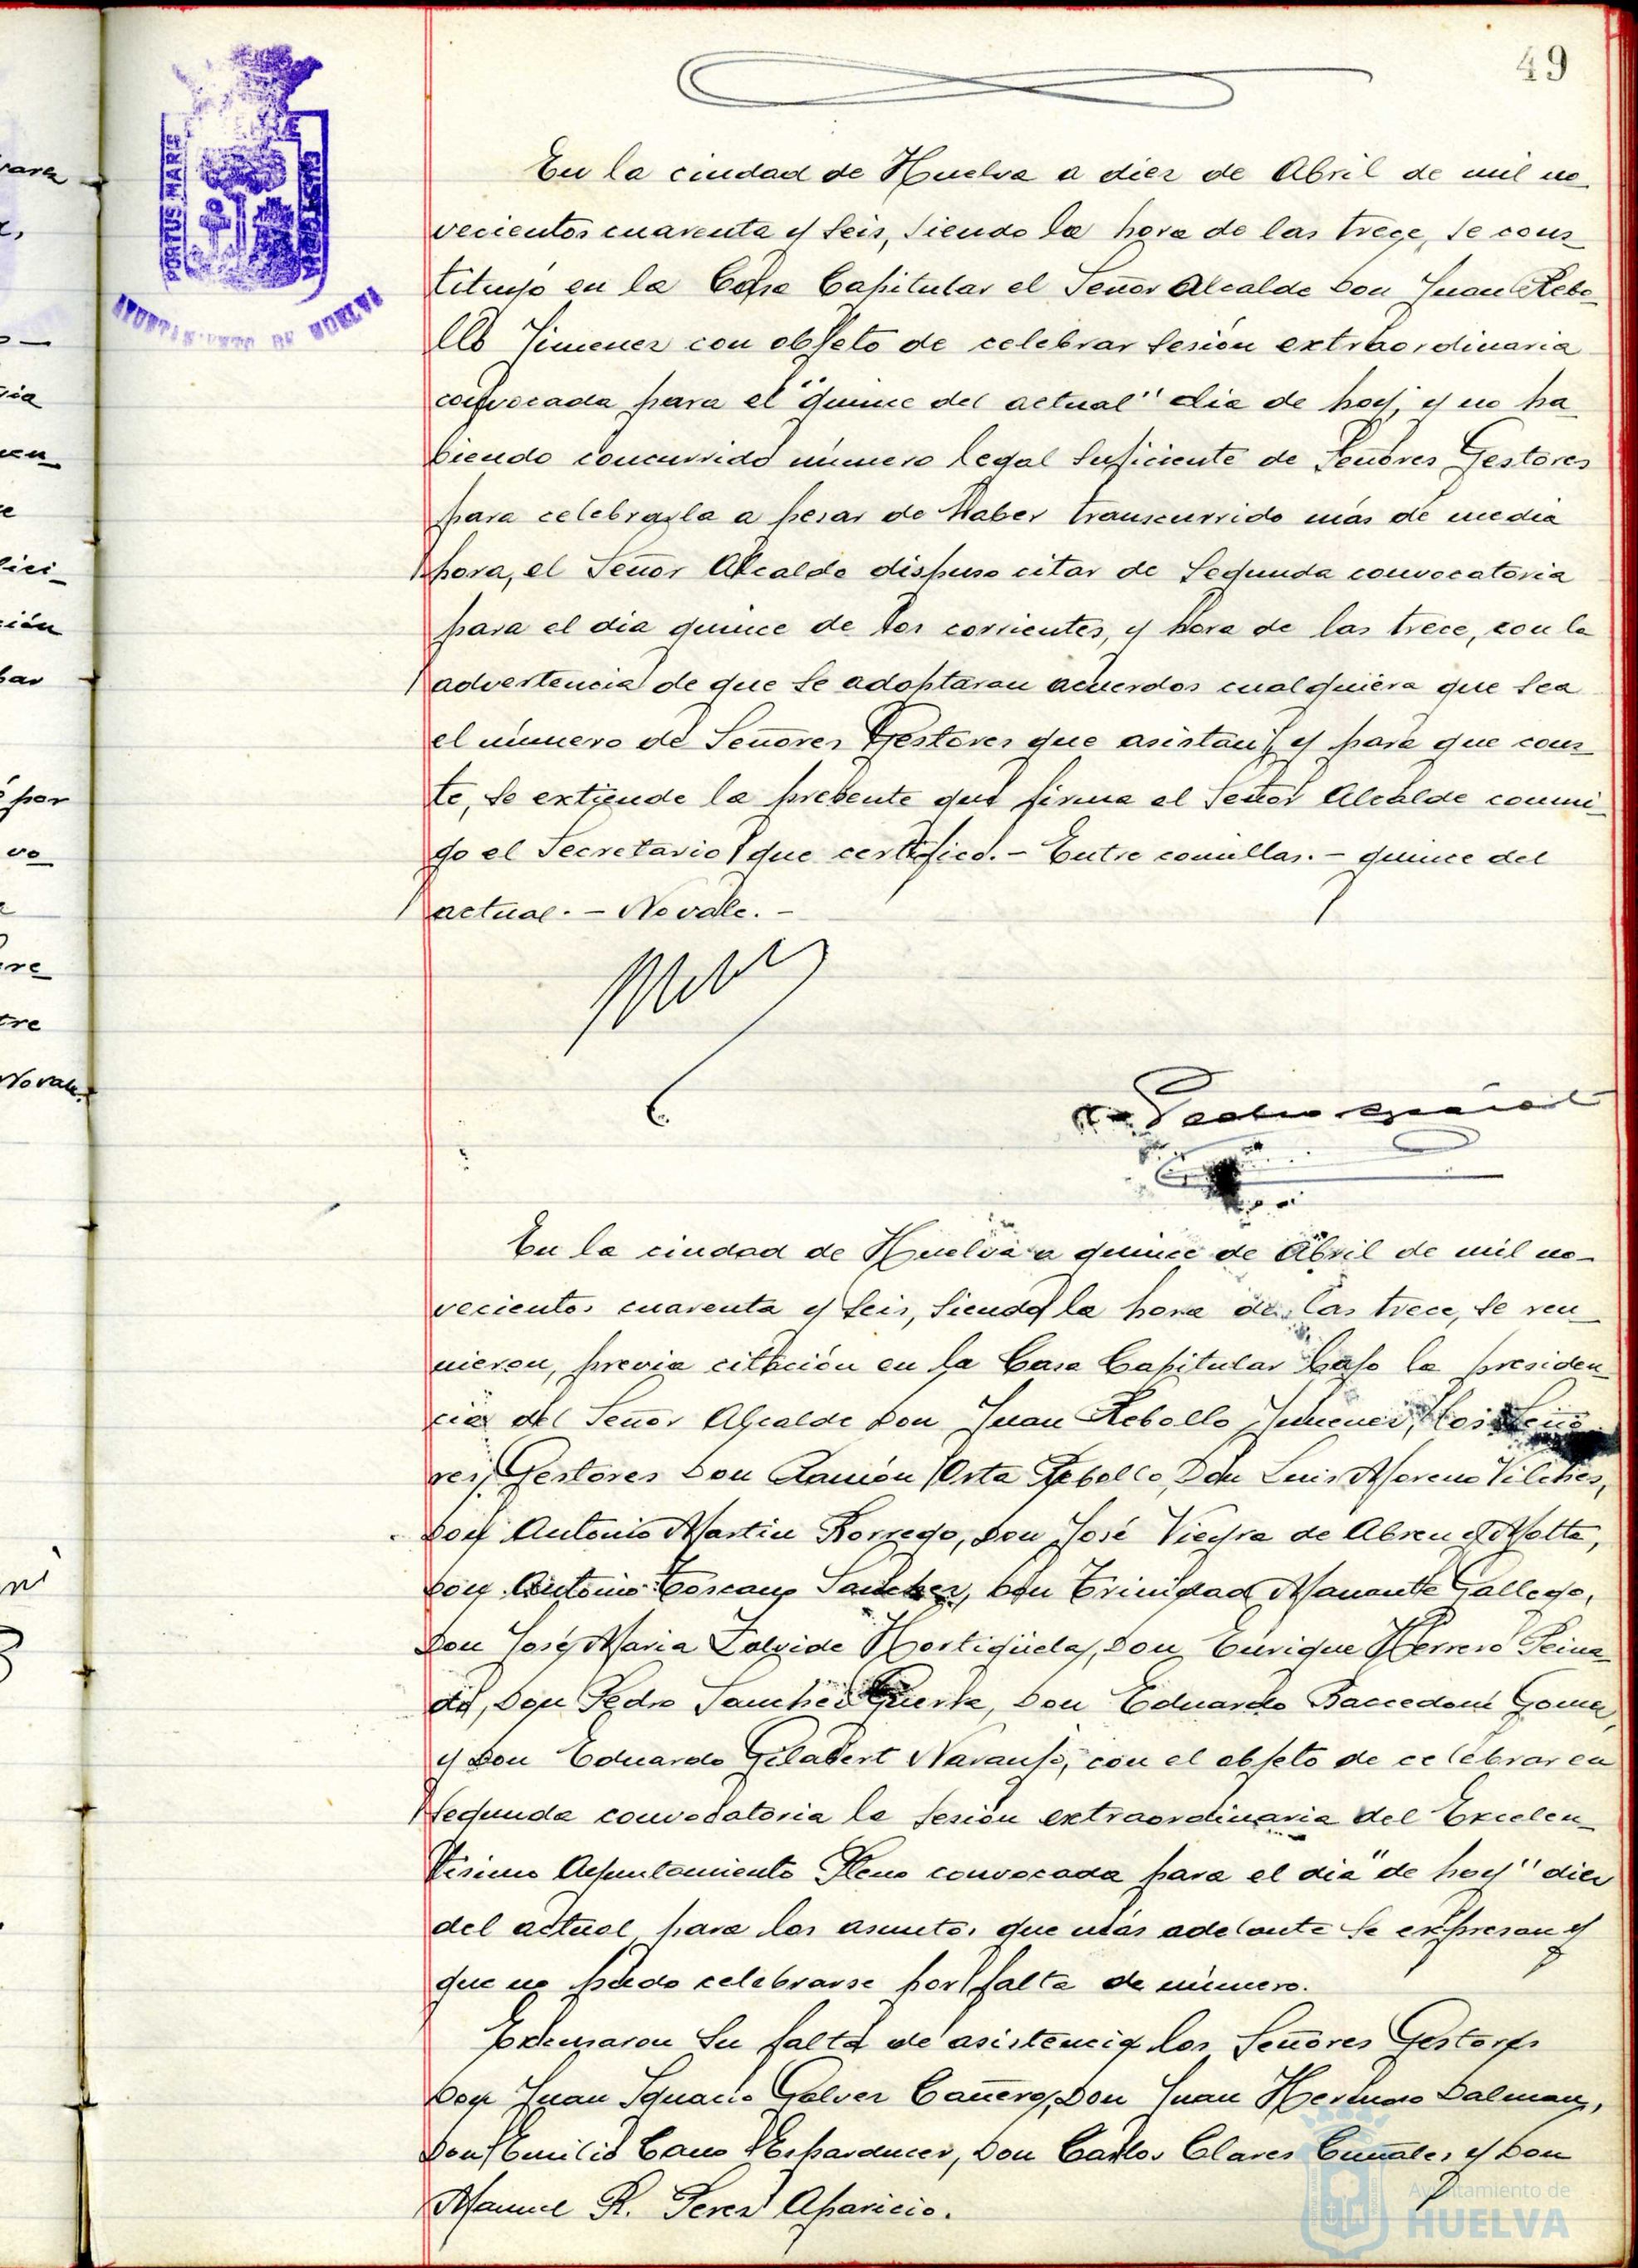 49
PORTUS MARIS
AYUNTAMIENTO DE HUELVA
En la ciudad de Huelva a diez de Abril de mil no_
vecientos cuarenta y seis, siendo la hora de las trece, se cons_
tituyó en la Casa Capitular el Señor Alcalde Don Juan Rebo_
llo Jimenez con objeto de celebrar sesión extraordinaria
convocada para el "quince del actual" dia de hoy, y no ha_
biendo concurrido número legal suficiente de Señores Gestores
para celebrarla a pesar de haber transcurrido más de media
hora, el Señor Alcalde dispuso citar de segunda convocatoria
para el dia quince de los corrientes, y hora de las trece, con la
advertencia de que se adoptaran acuerdos cualquiera que sea
el número de Señores Gestores que asistan; y para que cons_
te, se extiende la presente que firma el Señor Alcalde conmi_
go el Secretario que certifico.- Entre comillas.- quince del
actual.- No vale.-
En la ciudad de Huelva a quince de Abril de mil no_
vecientos cuarenta y seis, siendo la hora de las trece, se reu_
nieron, previa citación en la Casa Capitular bajo la presiden_
cia del Señor Alcalde Don Juan Rebollo Jimenez, los Seño_
res Gestores Don Ramón Orta Rebollo, Don Luis Moreno Vilches,
Don Antonio Martin Borrego, Don José Vieyra de Abreu y Motta,
Don Antonio Toscano Sanchez, Don Trinidad Manante Gallego,
Don José Maria Zalvide Hortigüela, Don Enrique Herrero Peina_
do, Don Pedro Sanchez Guerra, Don Eduardo Baccedoni Gomez,
y Don Eduardo Gilabert Naranjo, con el objeto de celebrar en
segunda convocatoria la sesión extraordinaria del Excelen_
tisimo Ayuntamiento Pleno convocada para el dia "de hoy" diez
del actual para los asuntos que más adelante se expresan y
que no pudo celebrarse por falta de número.
Excusaron su falta de asistencia los Señores Gestores
Don Juan Ignacio Galvez Cañero, Don Juan Hermoso Dalmau,
Don Emilio Cano Esparducer, Don Carlos Clares Cuñales y Don
Manuel R. Perez Aparicio.
Ayuntamiento de
HUELVA